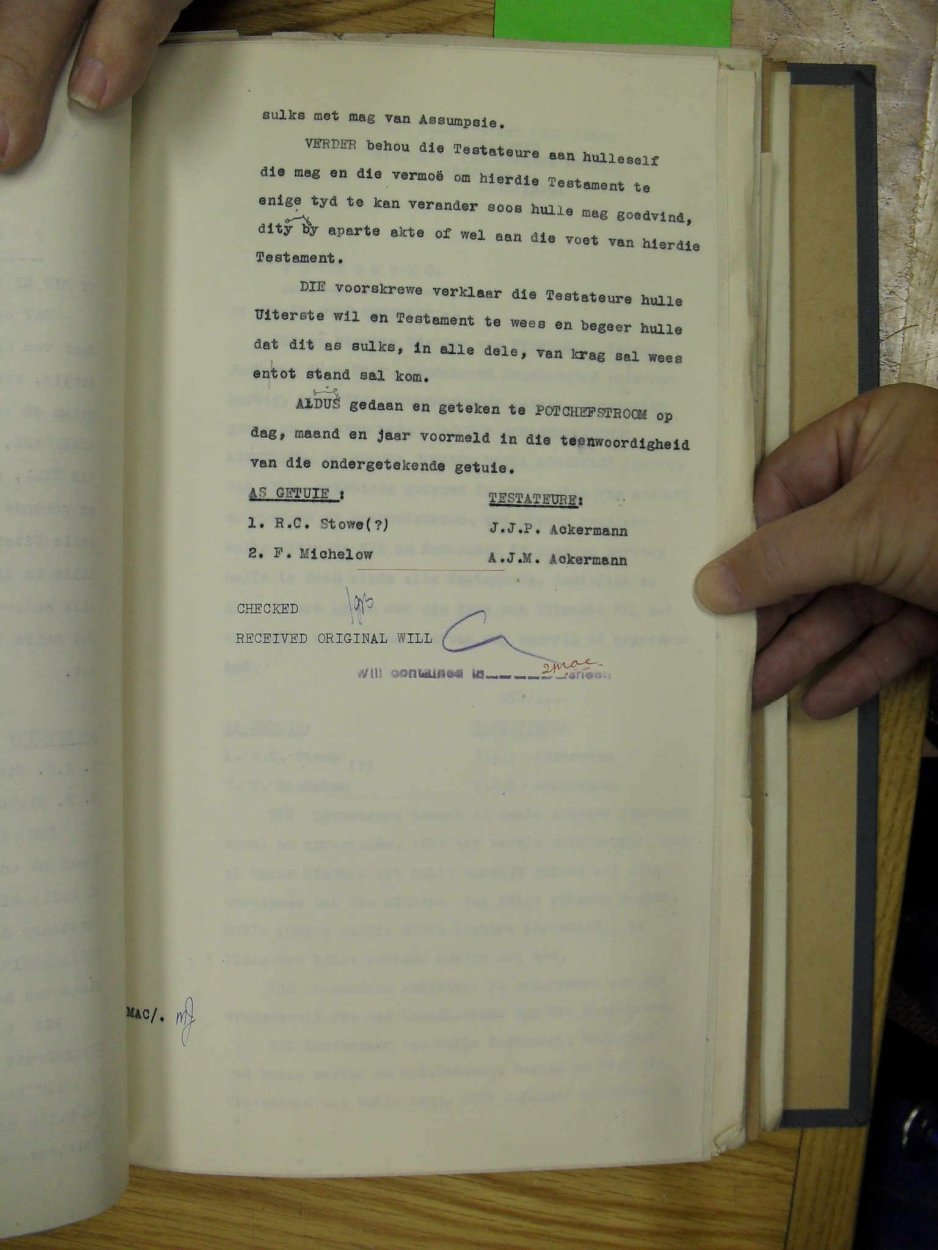 sulks met mag van Assumpsie.
VERDER behou die Testateure aan hulleself
die mag en die vermoë om hierdie Testament te
enige tyd te kan verander soos hulle mag goedvind,
dity by aparte akte of wel aan die voet van hierdie
Testament.
DIE voorskrewe verklaar die Testateure hulle
Uiterste wil en Testament te wees en begeer hulle
dat dit as sulks, in alle dele, van krag sal wees
entot stand sal kom.
ALDUS gedaan en geteken te POTCHEFSTROOM op
dag, maand en jaar voormeld in die teenwoordigheid
van die ondergetekende getuie.
AS GETUIE : TESTATEURE:
1. R.C. Stowe(?) J.J.P. Ackermann
2. F. Michelow A.J.M. Ackermann
CHECKED
RECEIVED ORIGINAL WILL
Will contained in 2 sheet
MAC/.